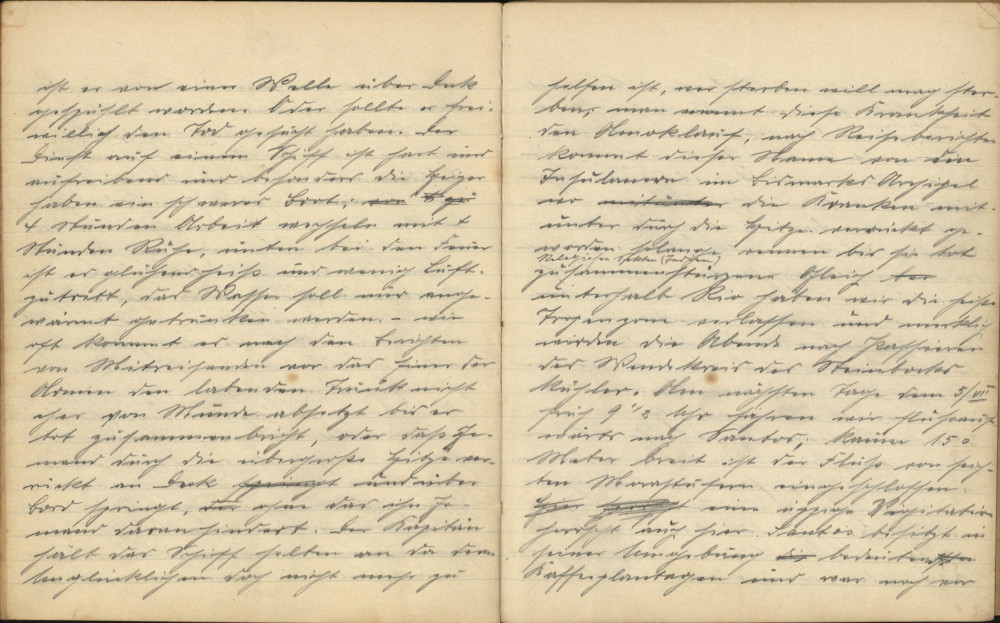 ist er von einer Welle über Deck
gespühlt worden. Oder sollte er frei-
willig den Tod gesucht haben. Der
Dienst auf einem Schiff ist hart und
aufreibend und besonders die Heizer
haben ein schweres Brot; von
4 Stunden Arbeit wechseln mit 4
Stunden Ruhe, unten bei den Feuer
ist es glühend heiß und wenig Luft-
zutritt, das Wasser soll nur ange-
wärmt getrunken werden. - wie
oft kommt es nach den Berichten
von Mitreisenden vor das einer der
Armen den labenden Trunk nicht
eher vom Munde absetzt bis er
tot zusammenbricht, oder daß Je-
mand durch die übergroße Hitze ver-
rückt an Deck springt und über
Bord springt, der ohne das ihn Je-
mand daran hindert. Der Kapitän
hält das Schiff selten an da dem
Unglücklichen doch nicht mehr zu
helfen ist, wer sterben will mag ster-
ben; man nennt diese Krankheit
den Amoklauf, nach Reiseberichten
kommt dieser Name von den
Insulanern im Bismarks Archipel
wo mitunter die Kranken mit-
unter durch die Hitze verrückt ge-
worden solange rennen bis sie tot
(Indien)
zusammenstürzen. Gleich
unterhalb Rio haben wir die heiße
Tropenzone verlassen und merklich
wurden die Abende nach Passieren
des Wendekreis des Steinbocks
kühler. Am nächsten Tage dem 5/VI
früh 9 1/2 Uhr fahren wir flußauf-
wärts nach Santos; kaum 150
Meter breit ist der Fluß von
Morastufern eingeschlossen.
Hier eine üppige Vegitation
herscht auch hier. Santos besitzt in
seiner Umgebung die bedeutendsten
Kaffeeplantagen und war noch vor